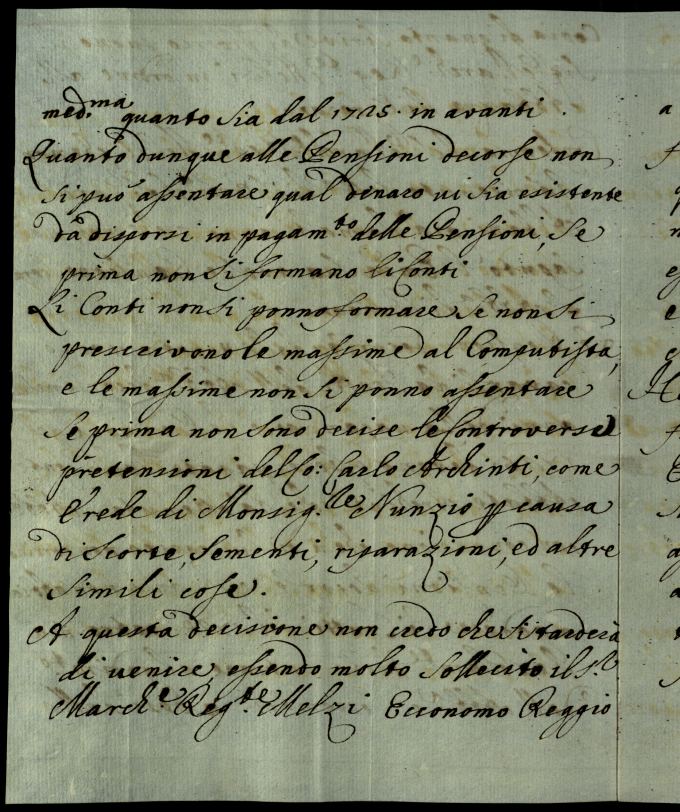 med.ma quanto sia dal 1725. in avanti.
Quanto dunque alle Pensioni decorse non
si può assentare qual denaro vi sia esistente
da disporsi in pagam.to delle Pensioni, se
prima non si formano li Conti
Li Conti non si ponno formare se non si
prescrivono le massime al Computista,
e le massime non si ponno assentare
se prima non sono decise le Controverse
pretensioni del Co: Carlo Archinti, come
Erede di Monsig.re Nunzio p causa
di Scorte, Sementi, riparazioni, ed altre
simili cose.
A questa decisione non credo che si tarderà
di venire, essendo molto sollecito il S.r
March.e Reg.te Melzi Economo Reggio